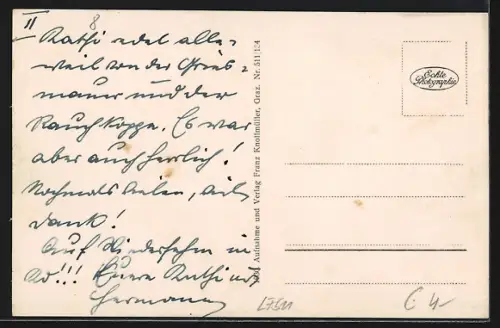 II
8
Kathi redet alle-
weil von der Gries-
mauer und der
Rauchkoppe. Es war
aber auch herrlich!
Nochmals vielen, vielen
dank!
Auf Wiedersehn in
Euere Kathi u.
Hermann
Aufnahme und Verlag Franz Knollmüller, Graz. Nr. 511/124
Echte
Photographie
L7511
C 4